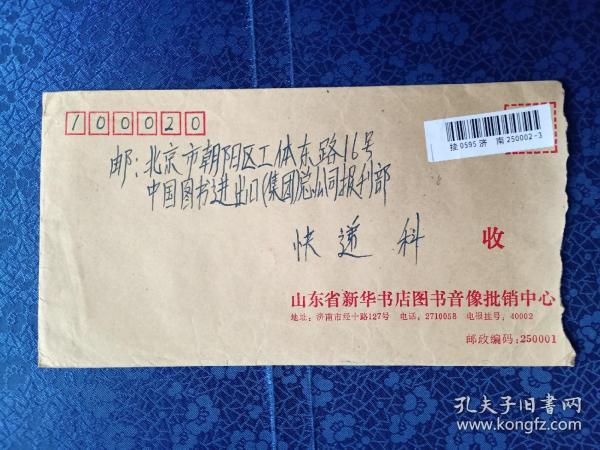 100020
挂0595 济 南 250002-3
邮:北京市朝阳区工体东路16号
中国图书进出口(集团)总公司报刊部
快递科 收
山东省新华书店图书音像批销中心
地址:济南市经十路127号 电话:2710058 电报挂号:40002
邮政编码:250001
孔夫子旧书网
www.kongfz.com